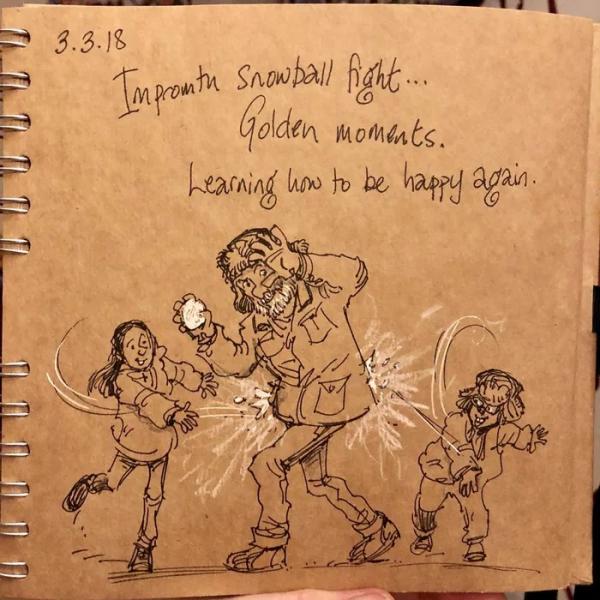 3.3.18
Impromtu snowball fight...
Golden moments.
Learning how to be happy again.